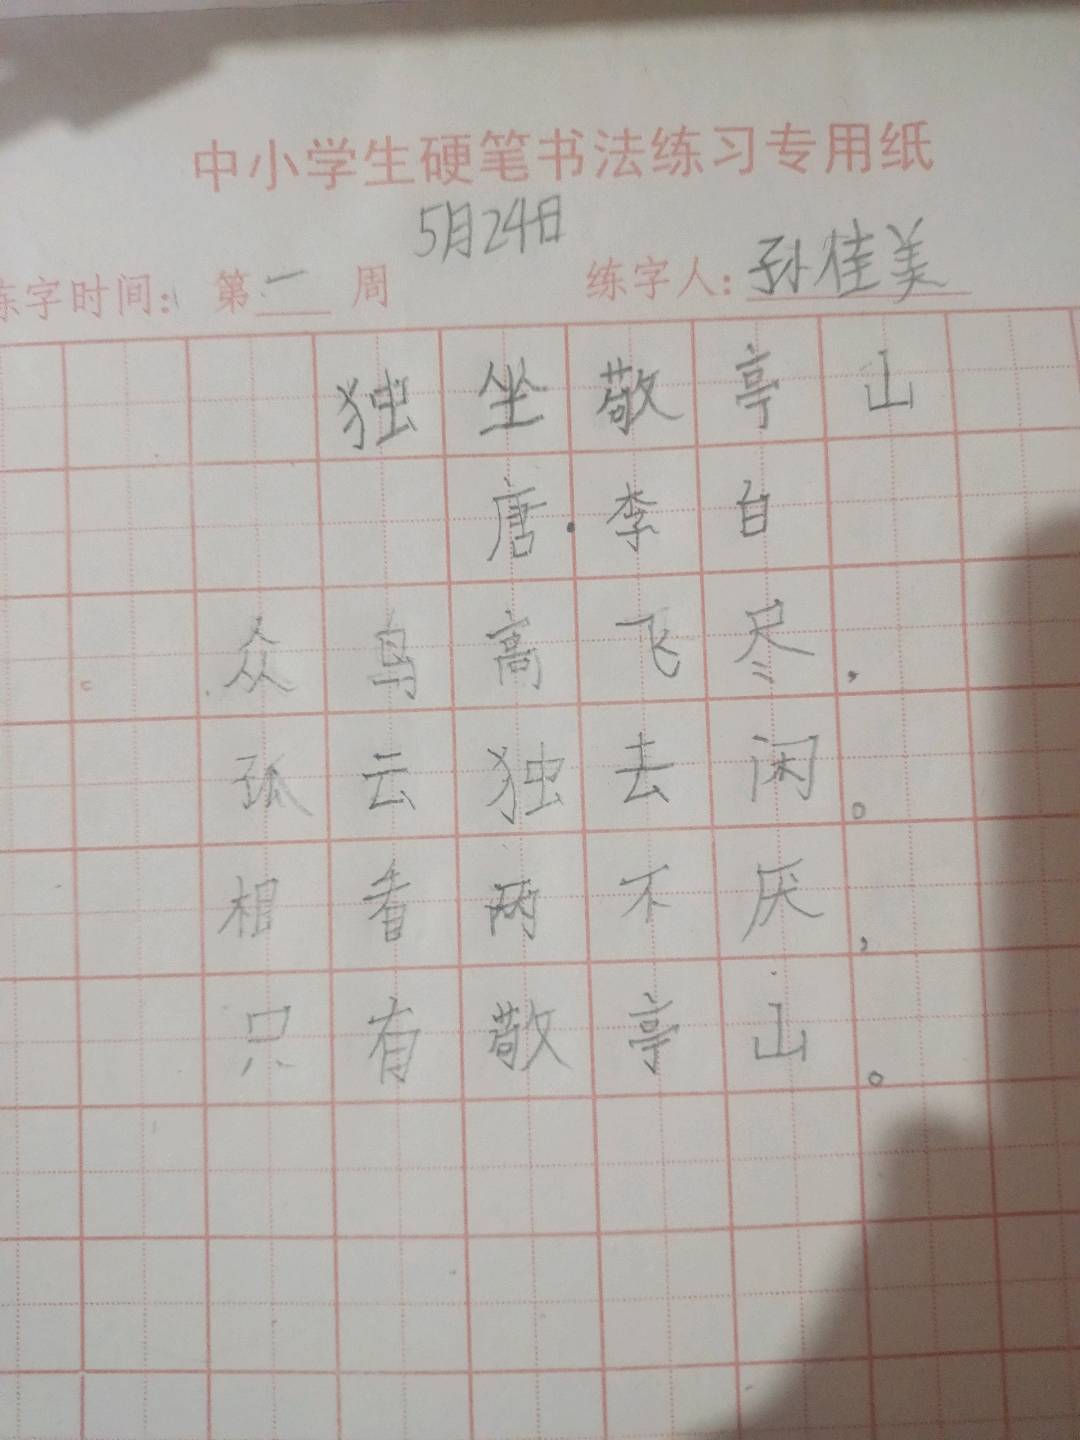 中小学生硬笔书法练习专用纸
5月24日
练字时间: 第一周 练字人: 孙佳美
独坐敬亭山
唐·李白
众鸟高飞尽，
孤云独去闲。
相看两不厌，
只有敬亭山。